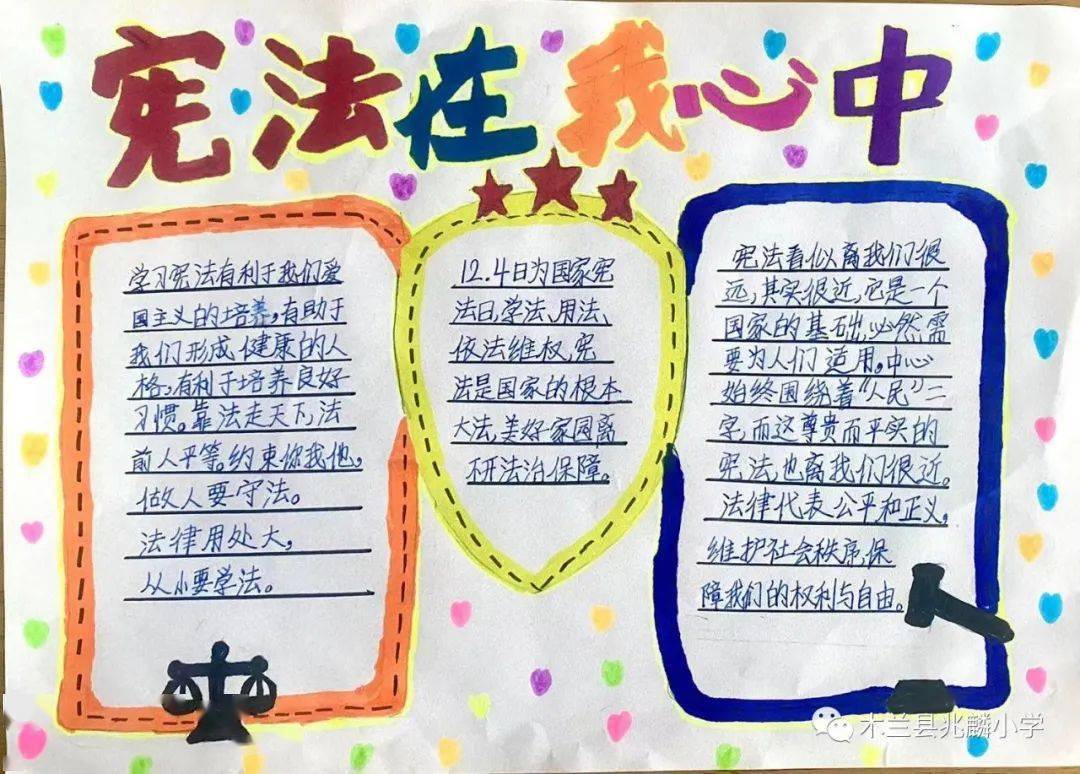 宪法在我心中
学习宪法有利于我们爱
国主义的培养,有助于
我们形成健康的人
格,有利于培养良好
习惯。靠法走天下,法
前人平等。约束你我他,
做人要守法。
法律用处大,
从小要学法。
12.4日为国家宪
法日,学法、用法、
依法维权,宪
法是国家的根本
大法,美好家园离
不开法治保障。
宪法看似离我们很
远,其实很近,它是一个
国家的基础,必然需
要为人们适用。中心
始终围绕着“人民”二
字,而这尊贵而平实的
宪法,也离我们很近。
法律代表公平和正义,
维护社会秩序,保
障我们的权利与自由。
木兰县兆麟小学